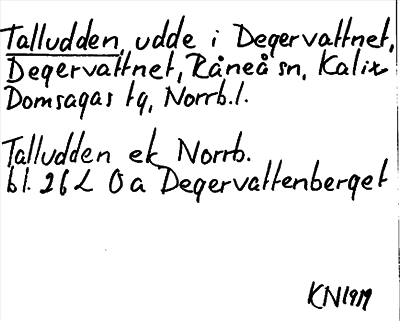 Talludden, udde i Degervattnet,
Degervattnet, Råneå sn, Kalix
Domsagas tg, Norrb.l.
Talludden ek Norrb.
bl. 26 L 0a Degervattenberget